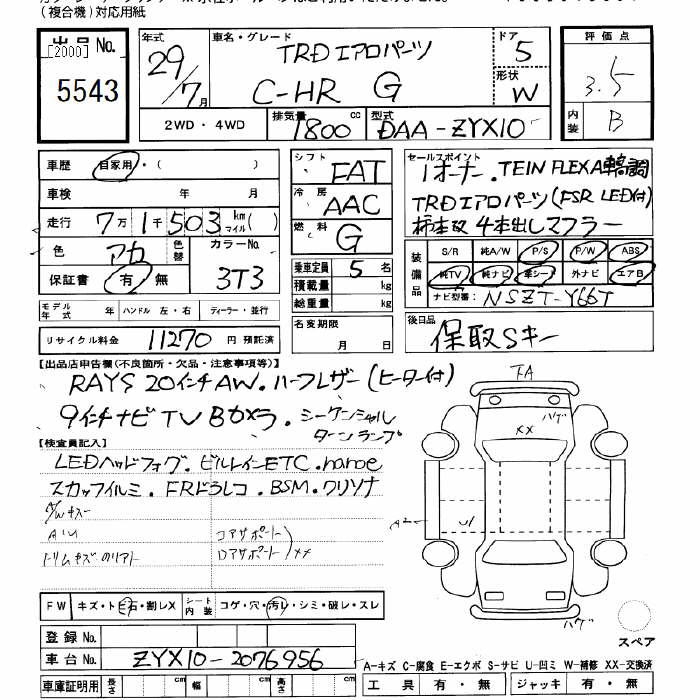 (複合機)対応用紙
出品No.
[2000]
5543
年式 29/7月
車名・グレード TRDエアロパーツ
C-HR G
ドア 5
形状 W
評価点
3.5
内装 B
2WD・4WD
排気量 1800cc
型式 DAA-ZYX10
車歴 自家用・( )
車検 年 月
走行 7万1千503 km マイル( )
色 アカ 色替 カラーNo. 3T3
保証書 有 無
シフト FAT
冷房 AAC
燃料 G
乗車定員 5名
積載量 kg
総重量 kg
セールスポイント
1オーナー.TEIN FLEXA車高調
TRDエアロパーツ(FSR LED付)
柿本改 4本出しマフラー
装備品
S/R 純A/W P/S P/W ABS
純TV 純ナビ 革シート 外ナビ エアB
ナビ型番: NSZT-Y66T
モデル年式 年 ハンドル 左・右 ディーラー・並行
リサイクル料金 11270円 預託済
名変期限
月 日
後日品
保取Sキー
【出品店申告欄(不良箇所・欠品・注意事項等)】
RAYS 20インチAW.ハーフレザー(ヒーター付)
9インチナビ TV Bカメラ.シーケンシャル
ターンランプ
【検査員記入】
LEDヘッドフォグ.ビルトインETC.nanoe
スカッフイルミ.FRドラレコ.BSM.クリソナ
A/Wキズ
トリムキズ のリアト
コアサポート
ロアサポート)XX
FA
ハゲ
XX
A2
U1
ハゲ
スペア
FW キズ・トビ石・割レX
シート内装 コゲ・穴・汚レ・シミ・破レ・スレ
登録No.
車台No. ZYX10-2076956
A-キズ C-腐食 E-エクボ S-サビ U-凹ミ W-補修 XX-交換済
車庫証明用 長さ cm 幅 cm 高さ cm
工具 有・無 ジャッキ 有・無